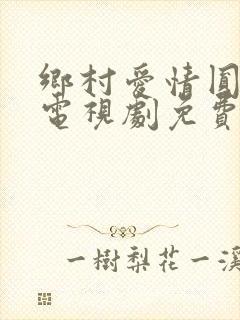 鄉村愛情圓
電視劇免費
一樹梨花一溪